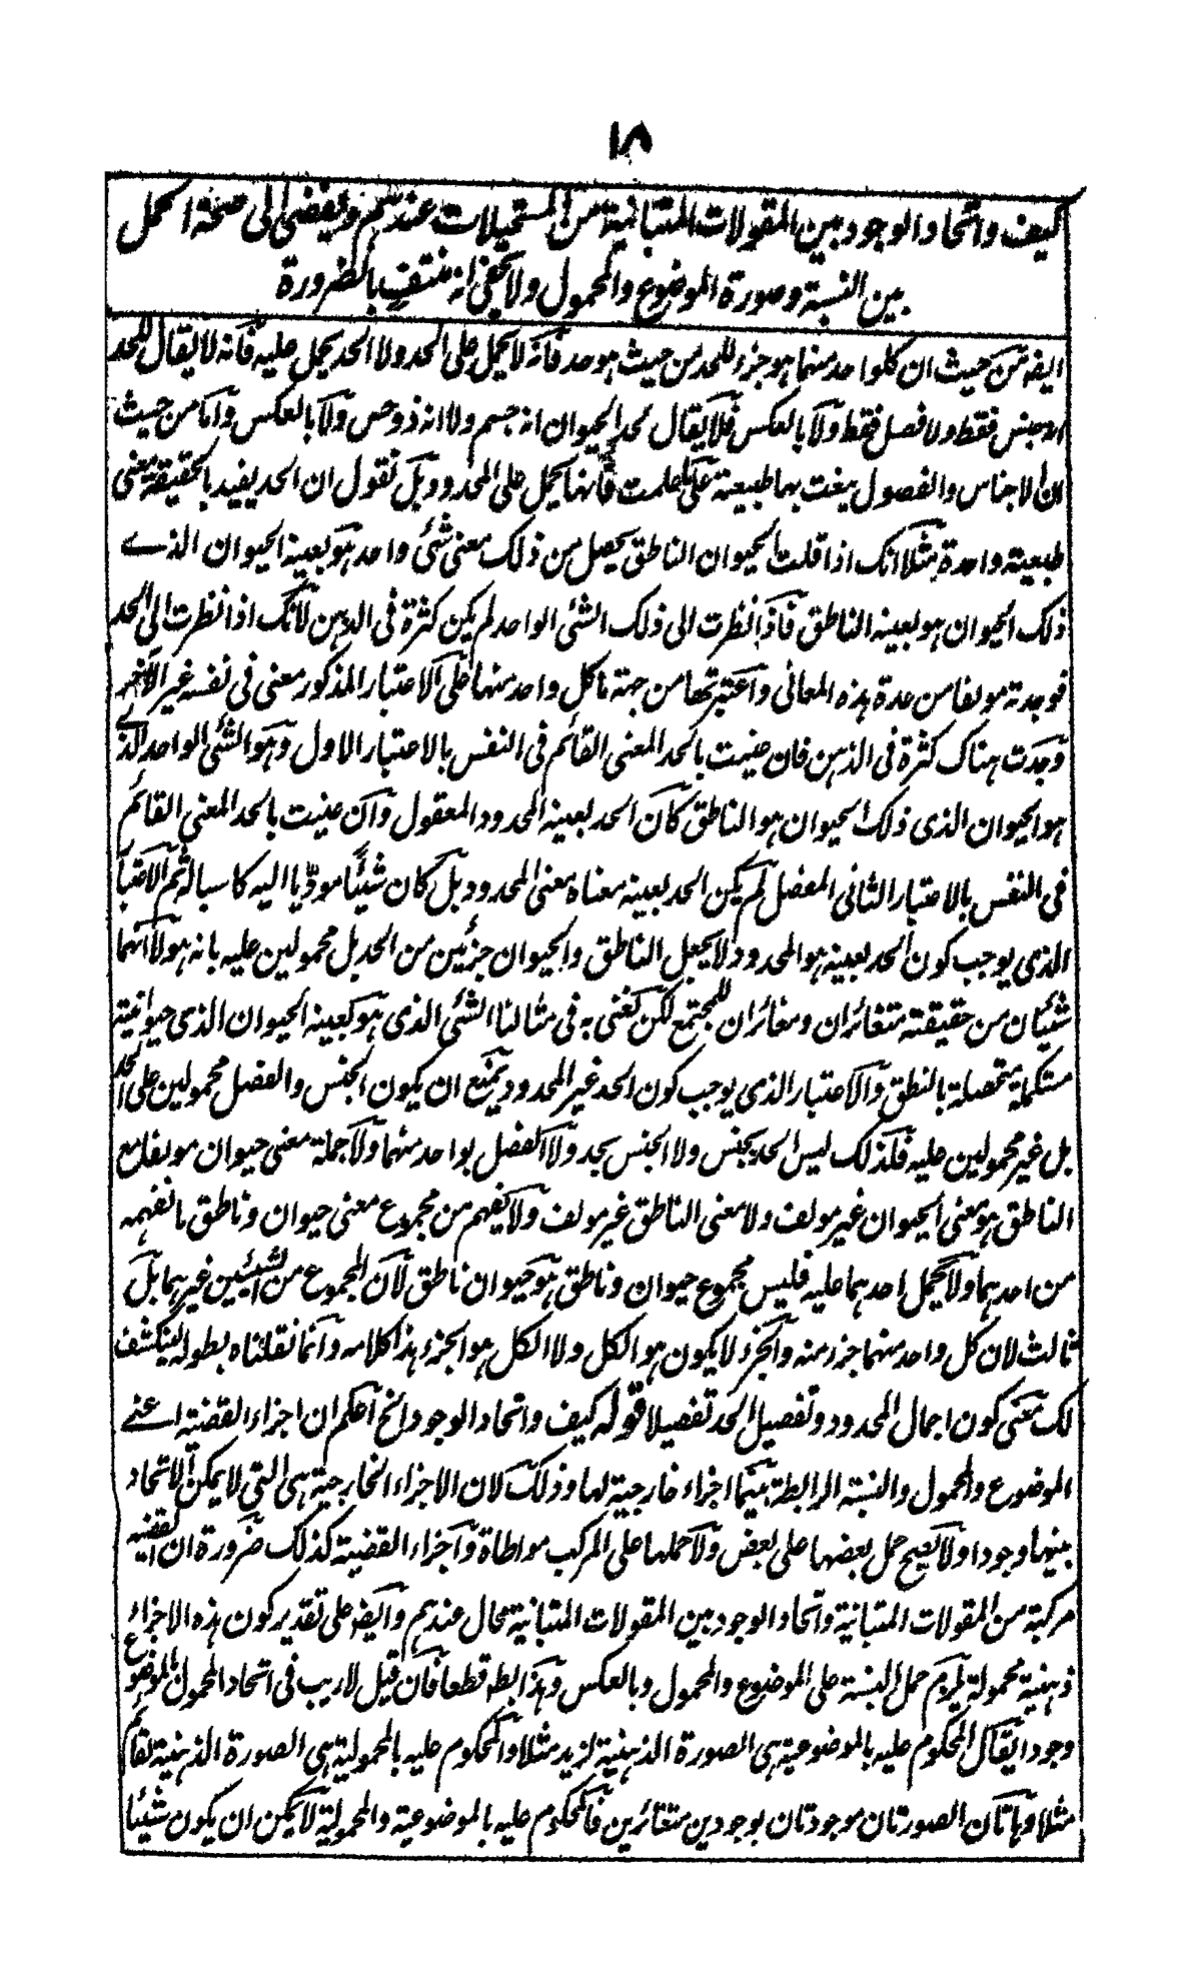 ١٨
كيف واتحاد الوجود بين المقولات المتبانية من المستحيلات عندهم ويفضى الى صحة الحمل
بين النسبة وصورة الموضوع والمحمول ولا يخفى انه منتف بالضرورة
ايضه من حيث ان كلواحد منهما هو جزء للحد من حيث هو حد فانه لا يحمل على الحد ولا الحد يحمل عليه فانه لا يقال للحد
انه جنس فقط ولا فصل فقط ولا بالعكس فلا يقال لحد الحيوان انه جسم ولا انه ذو حس ولا بالعكس واما من حيث
ان الاجناس والفصول يغت بها طبيعة على ما علمت فانها يحمل على المحدود بل نقول ان الحد يفيد بالحقيقة معنى
طبيعة واحدة مثلا انك اذا قلت الحيوان الناطق يحصل من ذلك معنى شئ واحد هو بعينه الحيوان الذے
ذلك الحيوان هو بعينه الناطق فاذا نظرت الى ذلك الشئ الواحد لم يكن كثرة فى الذهن لانك اذا نظرت الى الحد
فوجدته مولفا من عدة هذه المعانى واعتبرتها من جهة ما كل واحد منها على الاعتبار المذكور معنى فى نفسه غير الآخر
وجدت هناك كثرة فى الذهن فان عنيت بالحد المعنى القائم فى النفس بالاعتبار الاول وهو الشئ الواحد الذے
هو الحيوان الذى ذلك الحيوان هو الناطق كان الحد بعينه المحدود المعقول وان عنيت بالحد المعنى القائم
فى النفس بالاعتبار الثانى المفصل لم يكن الحد بعينه معناه معنى المحدود بل كان شيئا مودّيا اليه كاسبا له ثم الاعتبار
الذى يوجب كون الحد بعينه هو المحدود لا يجعل الناطق والحيوان جزئين من الحد بل محمولين عليه بانه هو لا انهما
شيئان من حقيقته متغائران ومغائران للمجتمع لكن نعنى به فى مثالنا الشئ الذى هو بعينه الحيوان الذى حيوانيته
مستكملة متحصلة بالنطق والاعتبار الذى يوجب كون الحد غير المحدود يمنع ان يكون الجنس والفصل محمولين على الحد
بل غير محمولين عليه فلذلك ليس الحد بجنس ولا الجنس بحد ولا الفصل بواحد منهما ولا جملة معنى حيوان مولفا مع
الناطق هو معنى الحيوان غير مولف ولا معنى الناطق غير مولف ولا يفهم من مجموع معنى حيوان وناطق ما نفهمه
من احدهما ولا يحمل احدهما عليه فليس مجموع حيوان وناطق هو حيوان ناطق لان المجموع من الشيئين غيرهما بل
ثالث لان كل واحد منهما جزء منه والجزء لا يكون هو الكل ولا الكل هو الجزء هذا كلامه وانما نقلناه بطوله لينكشف
لك معنى كون اجمال المحدود وتفصيل الحد تفصيلا قوله كيف واتحاد الوجود الخ اعلم ان اجزاء القضية اعنے
الموضوع والمحمول والنسبة الرابطة بينهما اجزاء خارجية لها وذلك لان الاجزاء الخارجية هى التى لا يمكن الاتحاد
بينها وجودا ولا يصح حمل بعضها على بعض ولا حملها على المركب مواطاة واجزاء القضية كذلك ضرورة ان القضية
مركبة من المقولات المتبانية واتحاد الوجود بين المقولات المتبانية محال عندهم وايضه على تقدير كون هذه الاجزاء
ذهنية محمولة يلزم حمل النسبة على الموضوع والمحمول وبالعكس وهذا بط قطعا فان قيل لا ريب فى اتحاد المحمول بالموضوع
وجودا يقال المحكوم عليه بالموضوعية هى الصورة الذهنية لزيد مثلا والمحكوم عليه بالمحمولية هى الصورة الذهنية لقائم
مثلا وهاتان الصورتان موجودتان بوجودين متغائرين فالمحكوم عليه بالموضوعية والمحمولية لا يمكن ان يكون شيئا